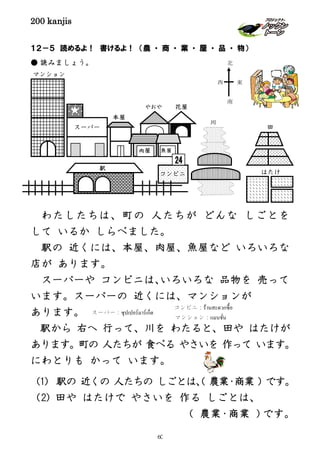 200 kanjis
プロジェクト
ノックン
トーイン
12－5 読めるよ！ 書けるよ！（農・商・業・屋・品・物）
● 読みましょう。
北
西 東
南
マンション
スーパー
本屋
やおや
花屋
肉屋
魚屋
24
コンビニ
駅
川
田
はたけ
わたしたちは、町の 人たちが どんな しごとを
して いるか しらべました。
駅の 近くには、本屋、肉屋、魚屋など いろいろな
店が あります。
スーパーや コンビニは、いろいろな 品物を 売って
います。スーパーの 近くには、マンションが
あります。
スーパー : ซุปเปอร์มาร์เก็ต
コンビニ : ร้านสะดวกซื้อ
マンション : แมนชั่น
駅から 右へ 行って、川を わたると、田や はたけが
あります。町の 人たちが 食べる やさいを 作って います。
にわとりも かって います。
(1) 駅の 近くの 人たちの しごとは、( 農業・商業 ) です。
(2) 田や はたけで やさいを 作る しごとは、
( 農業・商業 ) です。